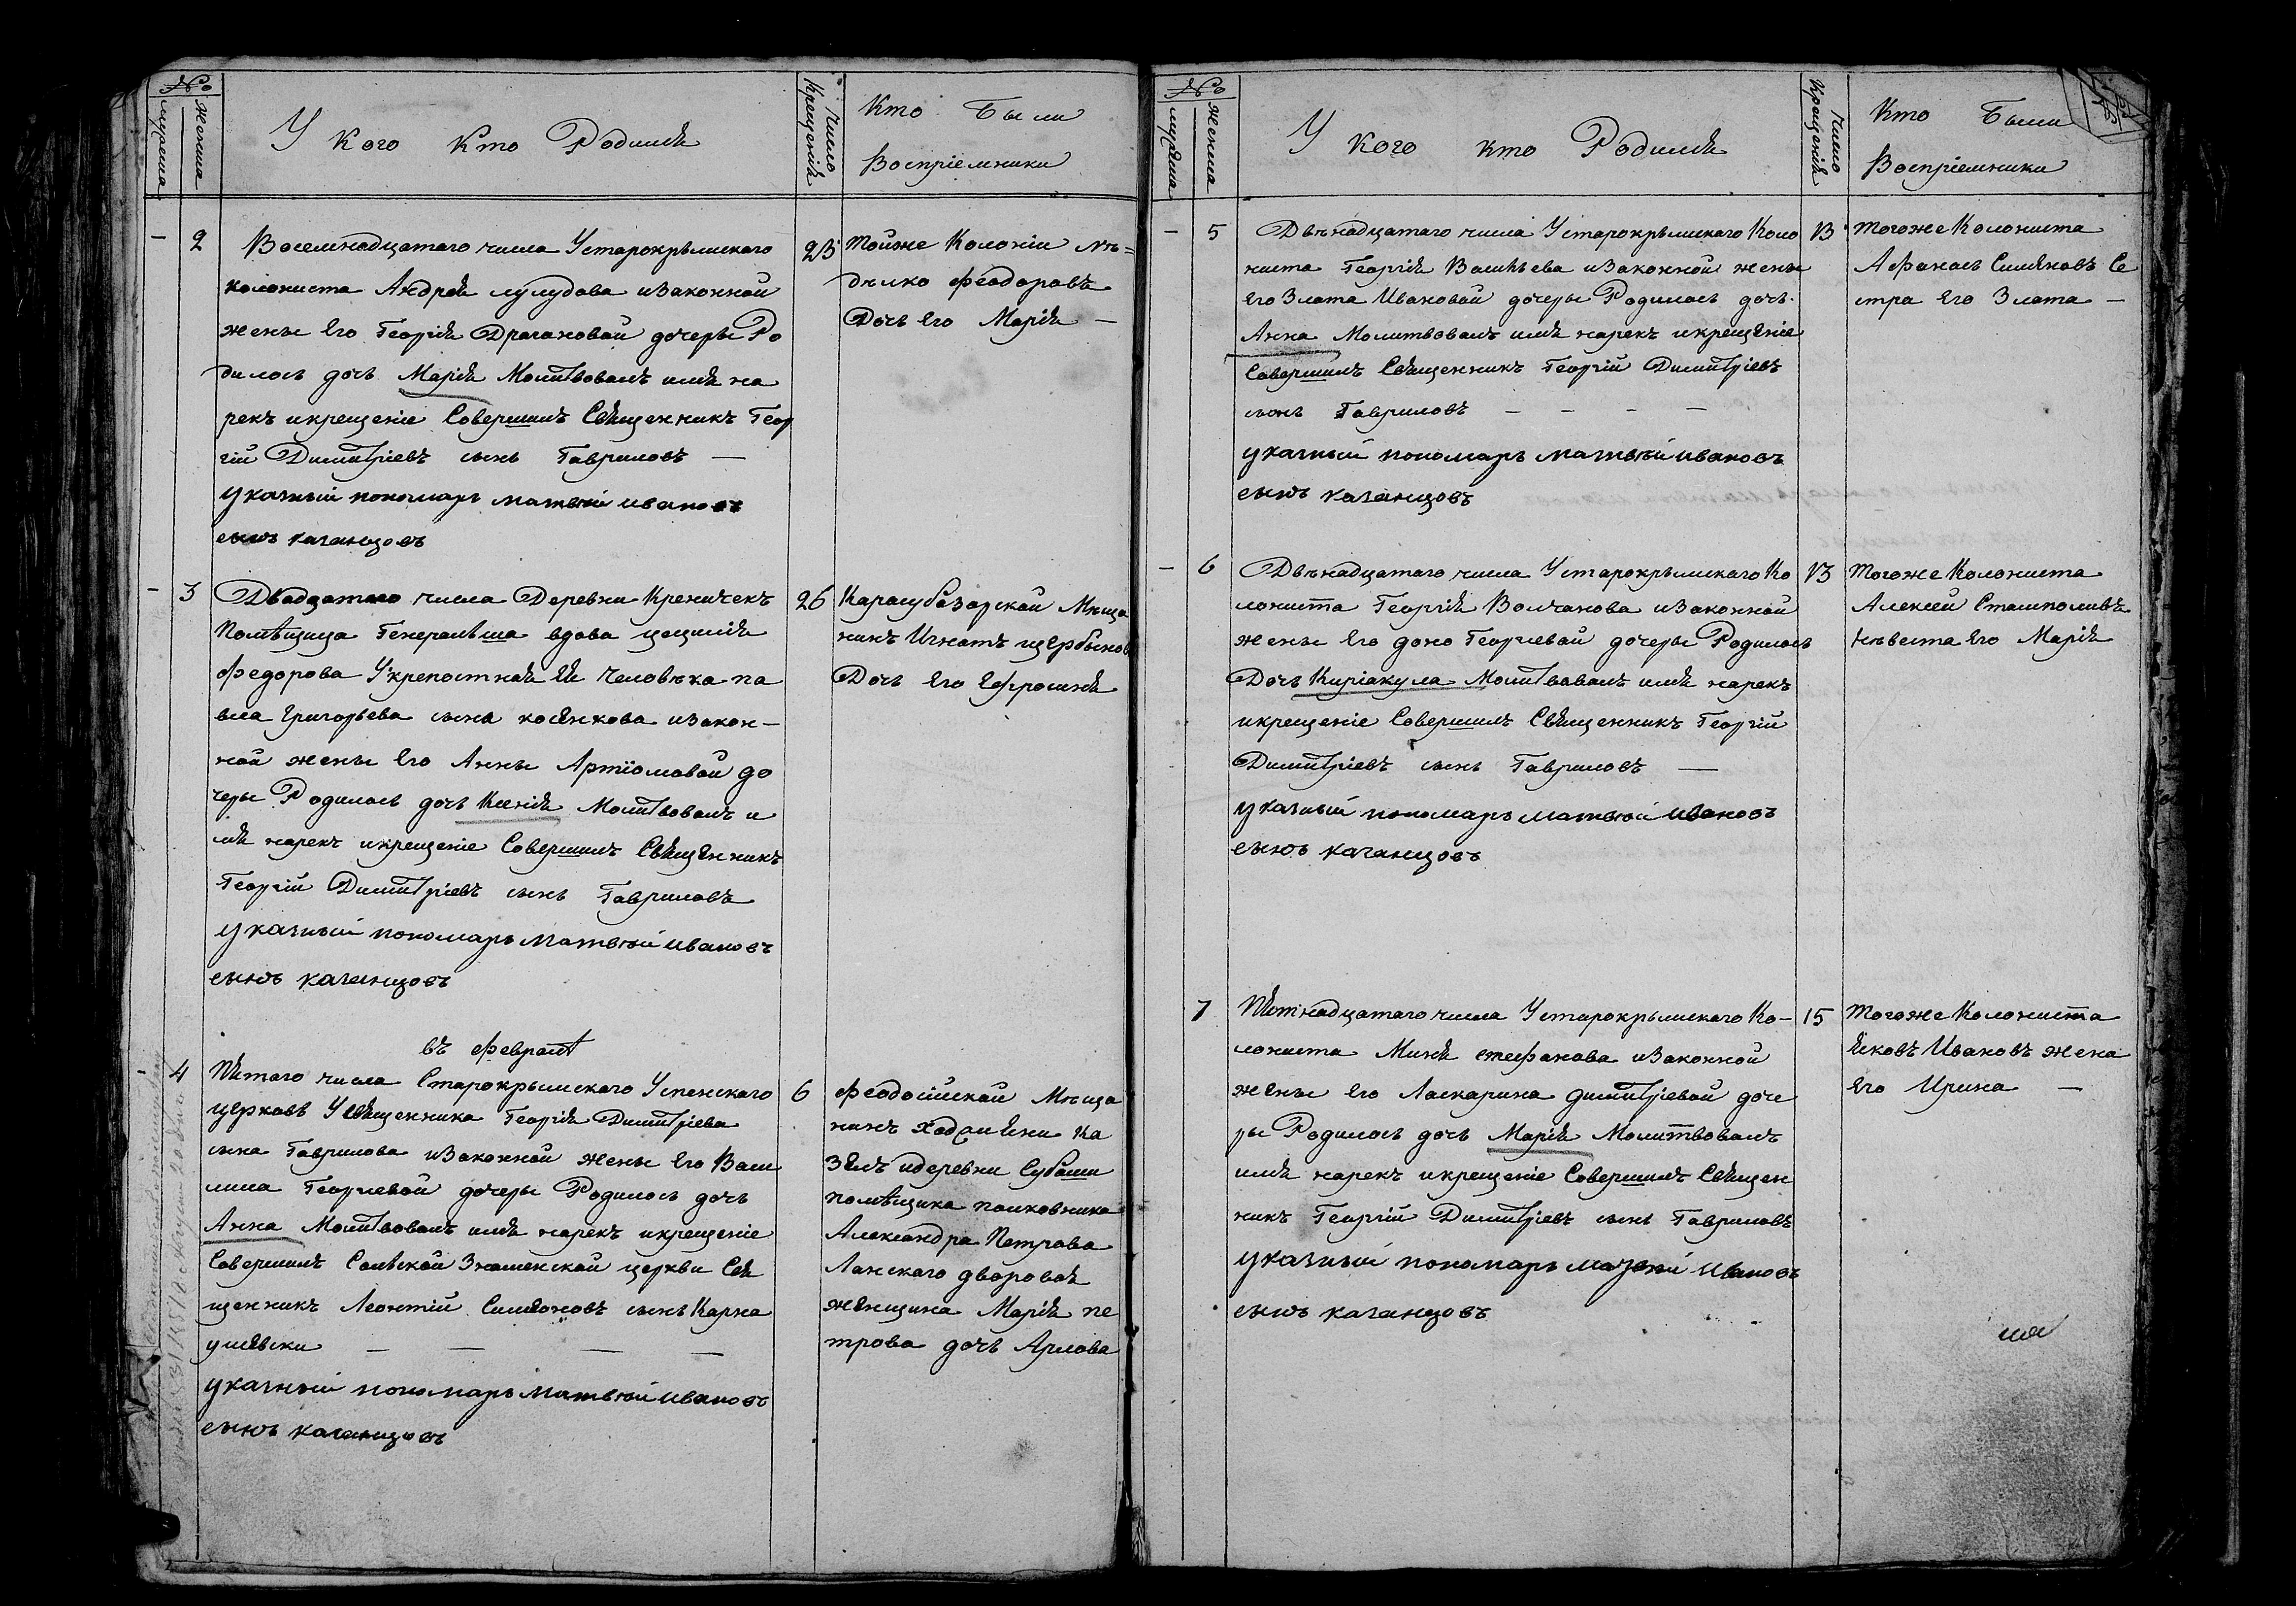 №
мужеска
женска
У кого кто Родился
Число Крещенія
Кто Были
Воспріемники
2
Восемнадцатаго числа Устарокрымскаго
колониста Андрея лулудова изаконной
жены Его Георгія Драгановой дочеры Ро
дилось дочь Марія Молитвовалъ имя на
рекъ икрещеніе Совершилъ Священникъ Геор
гій Димитріевъ сынъ Гавриловъ —
указный пономарь матвѣй ивановъ
сынъ казанцовъ
23
Тойже Колоніи
дѣлко Феодоровъ
Дочь Его Марія —
3
Двадцатаго числа Деревни Креничекъ
Помѣщица Генеральша вдова цецилія
Федорова Укрепостная Ея Человѣка па
вла Григорьева сына косенкова изакон-
ной жены Его Анны Артіомовой до
черы Родилось дочь Ксенія Молитвовалъ и
мя нарекъ икрещеніе Совершилъ Священникъ
Георгій Димитріевъ сынъ Гавриловъ
указный пономарь матвѣй ивановъ
сынъ казанцовъ
26
Карасубазарской Мѣща
никъ Игнатъ щербыновъ
Дочь Его Ефросинія
въ Февралѣ
4
Пятаго числа Старокрымскаго Успенскаго
церковъ Усвященника Георгія Димитріева
сына Гаврилова изаконной жены Его Васи
лиса Георгиевой дочеры Родилось дочь
Анна Молитвовалъ имя нарекъ икрещеніе
Совершилъ Салъской Знаменской церкви Свя
щенникъ Леонтій Симеоновъ сынъ Карна
ушевски — — — —
указный пономарь матвѣй ивановъ
сынъ казанцовъ
6
Феодосійской Мѣща
нинъ
идеревни Субаши
помѣщика полковника
Александра Петрова
Ланскаго дворовая
женщина Марія пе
трова дочь Арлова
№
мужеска
женска
У кого кто Родился
Число Крещенія
Кто Были
Воспріемники
5
Двѣнадцатаго числа Устарокрымскаго Коло
ниста Георгія Васильева изаконной жены
Его Злата Ивановой дочеры Родилось дочь
Анна Молитвовалъ имя нарекъ икрещеніе
Совершилъ Священникъ Георгій Димитріевъ
сынъ Гавриловъ — — — —
указный пономарь матвѣй ивановъ
сынъ казанцовъ
13
Тогоже Колониста
Афанась Симяновъ Се
стра Его Злата —
6
Двѣнадцатаго числа Устарокрымскаго Ко
лониста Георгія Волчанова изаконной
жены Его доно Георгиевой дочеры Родилось
Дочь Киріакула Молитвовалъ имя нарекъ
икрещеніе Совершилъ Священникъ Георгій
Димитріевъ сынъ Гавриловъ —
указный пономарь матвѣй ивановъ
сынъ казанцовъ
13
Тогоже Колониста
Алексей Стамполивъ
Нѣвеста Его Марія
7
Пятнадцатаго числа Устарокрымскаго Ко-
лониста Миня стефанова изаконной
жены Его Ласкарина димитріевой доче
ры Родилось дочь Марія Молитвовалъ
имя нарекъ икрещеніе Совершилъ Священ
никъ Георгій Димитріевъ сынъ Гавриловъ
указный пономарь матвѣй ивановъ
сынъ казанцовъ
15
Тогоже Колониста
Яковъ Ивановъ жена
Его Ирина —